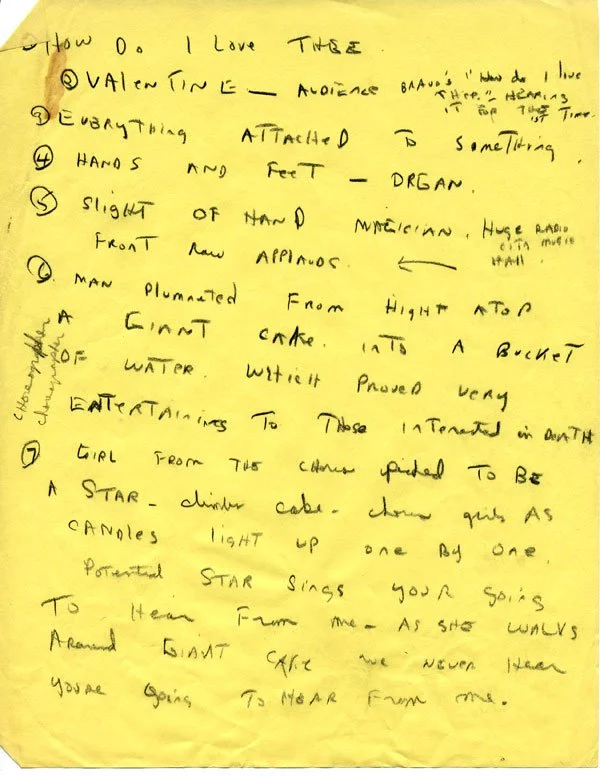 ① HOW DO I LOVE THEE.
② VALENTINE — AUDIENCE BRAVO'S "How do I love
THEE." HEARING
IT FOR THE 1ST TIME.
③ EVERYTHING ATTACHED TO SOMETHING.
④ HANDS AND FEET — ORGAN.
⑤ Slight OF HAND MAGICIAN. Huge RADIO
CITY MUSIC
HALL
FRONT Row APPLAUDS. ←
⑥ MAN PLUMMATED FROM HIGHT ATOP
A GIANT CAKE. INTO A BUCKET
OF WATER. WHICH PROVED VERY
ENTERTAINING TO THOSE INTERESTED IN DEATH
CHOREOGRAPHER
choreographer
⑦ GIRL FROM THE CHORUS picked TO BE
A STAR — climbs cake — chorus girls AS
CANDLES light UP one By One.
Potential STAR SINGS YOUR GOING
TO HEAR FROM me — AS SHE WALKS
Around GIANT CAKE we NEVER HEAR
YOURE GOING TO HEAR FROM me.